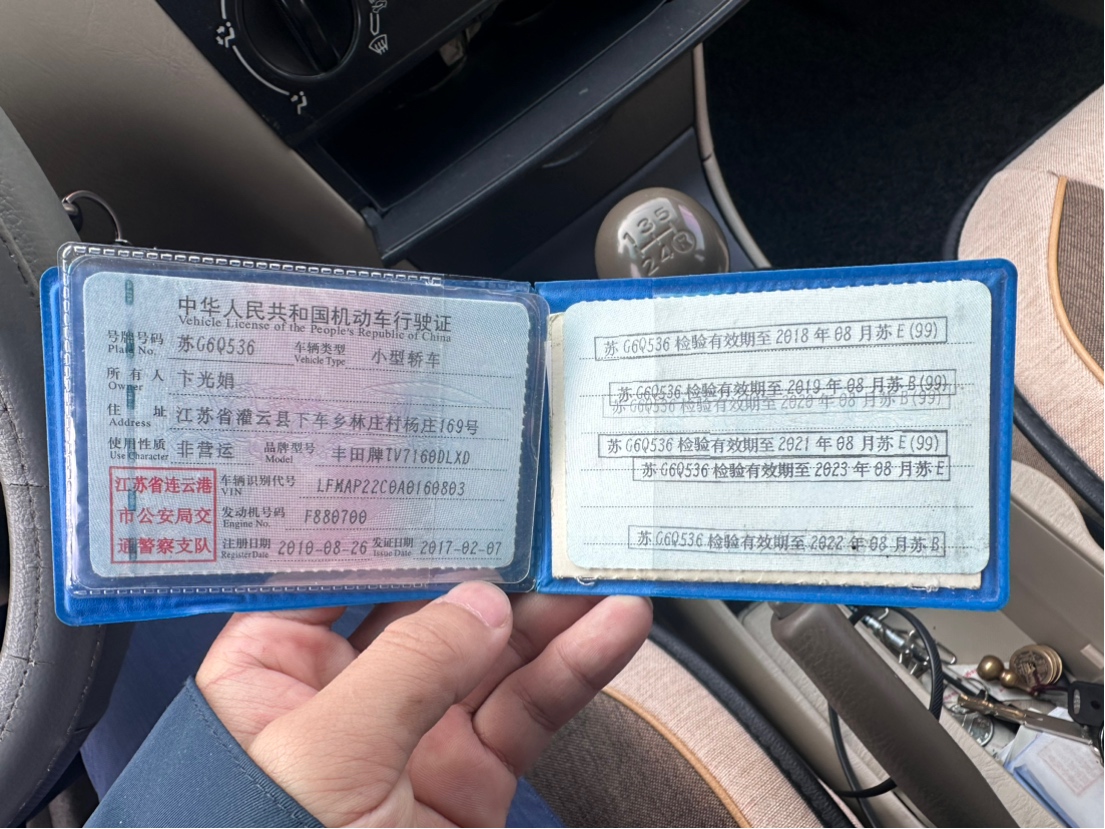 中华人民共和国机动车行驶证
Vehicle License of the People's Republic of China
号牌号码 苏G6Q536 车辆类型 小型轿车
Plate No. Vehicle Type
所有人 卞光娟
Owner
住址 江苏省灌云县下车乡林庄村杨庄169号
Address
使用性质 非营运 品牌型号 丰田牌TV7160DLXD
Use Character Model
江苏省连云港
市公安局交
通警察支队
车辆识别代号 LFMAP22C0A0160803
VIN
发动机号码 F880700
Engine No.
注册日期 2010-08-26 发证日期 2017-02-07
Register Date Issue Date
苏G6Q536 检验有效期至 2018 年 08 月苏E(99)
苏G6Q536 检验有效期至 2019 年 08 月苏B(99)
苏G6Q536 检验有效期至 2020 年 08 月苏 (99)
苏G6Q536 检验有效期至 2021 年 08 月苏E(99)
苏G6Q536 检验有效期至 2023 年 08 月苏E
苏G6Q536 检验有效期至 2022 年 08 月苏B
1 3 5
2 4 R